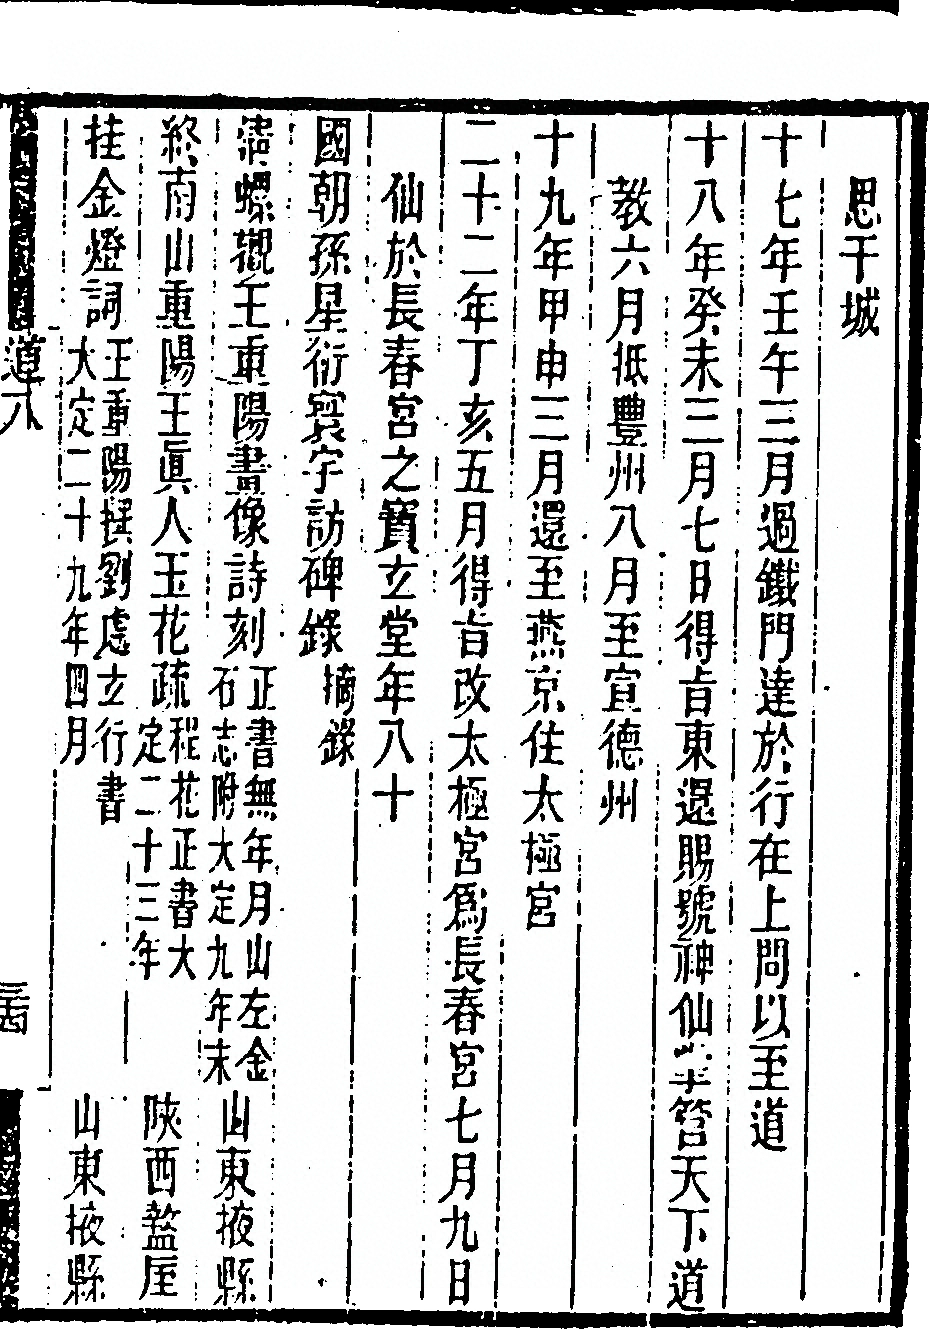 思干城
十七年壬午三月過鐵門達於行在上問以至道
十八年癸未三月七日得旨東還賜號神仙掌管天下道
教六月抵豐州八月至宣德州
十九年甲申三月還至燕京住太極宮
二十二年丁亥五月得旨改太極宮爲長春宮七月九日
仙於長春宮之寶玄堂年八十
國朝孫星衍寰宇訪碑錄摘錄
螺觀王重陽畫像詩刻正書無年月山左金石志附大定九年末山東掖縣
終南山重陽王眞人玉花疏程花正書大定二十三年陝西盩厔
挂金燈詞王重陽撰劉處玄行書大定二十九年四月山東掖縣
道八